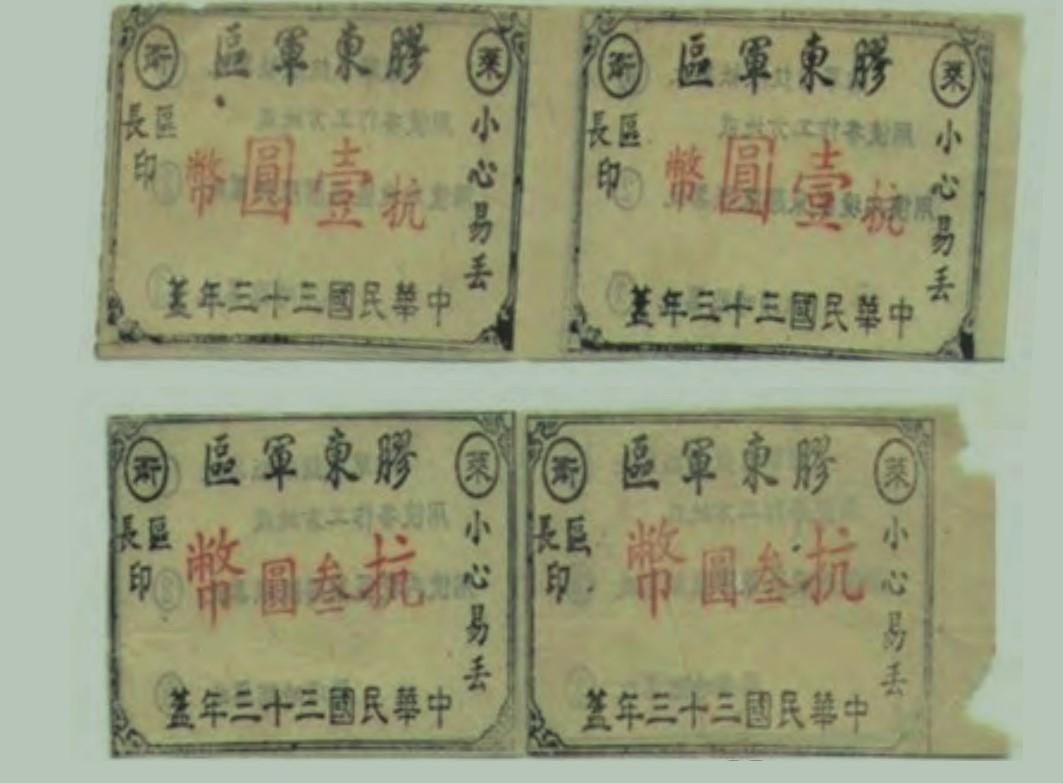 萊
膠東軍區
小心易丟
抗壹圓幣
區長
印
中華民國三十三年蓋
萊
膠東軍區
小心易丟
抗壹圓幣
區長
印
中華民國三十三年蓋
萊
膠東軍區
小心易丟
抗叁圓幣
區長
印
中華民國三十三年蓋
萊
膠東軍區
小心易丟
抗叁圓幣
區長
印
中華民國三十三年蓋